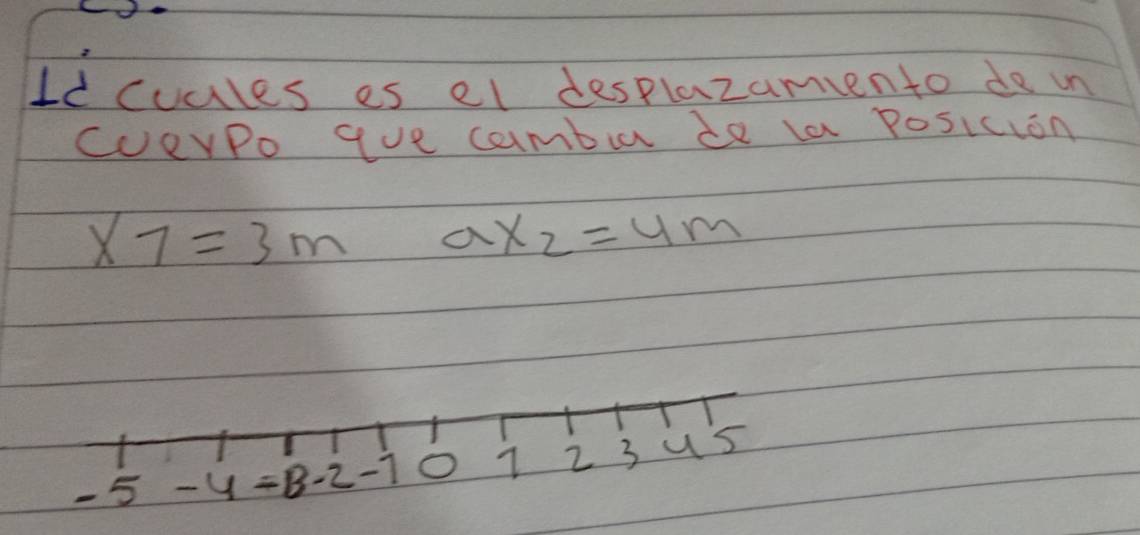 1¿ cuales es el desplazamiento de un
cuerpo que cambia de la posición
X1 = 3m a x2 = 4m
-5 -4 -3 -2 -1 0 1 2 3 4 5